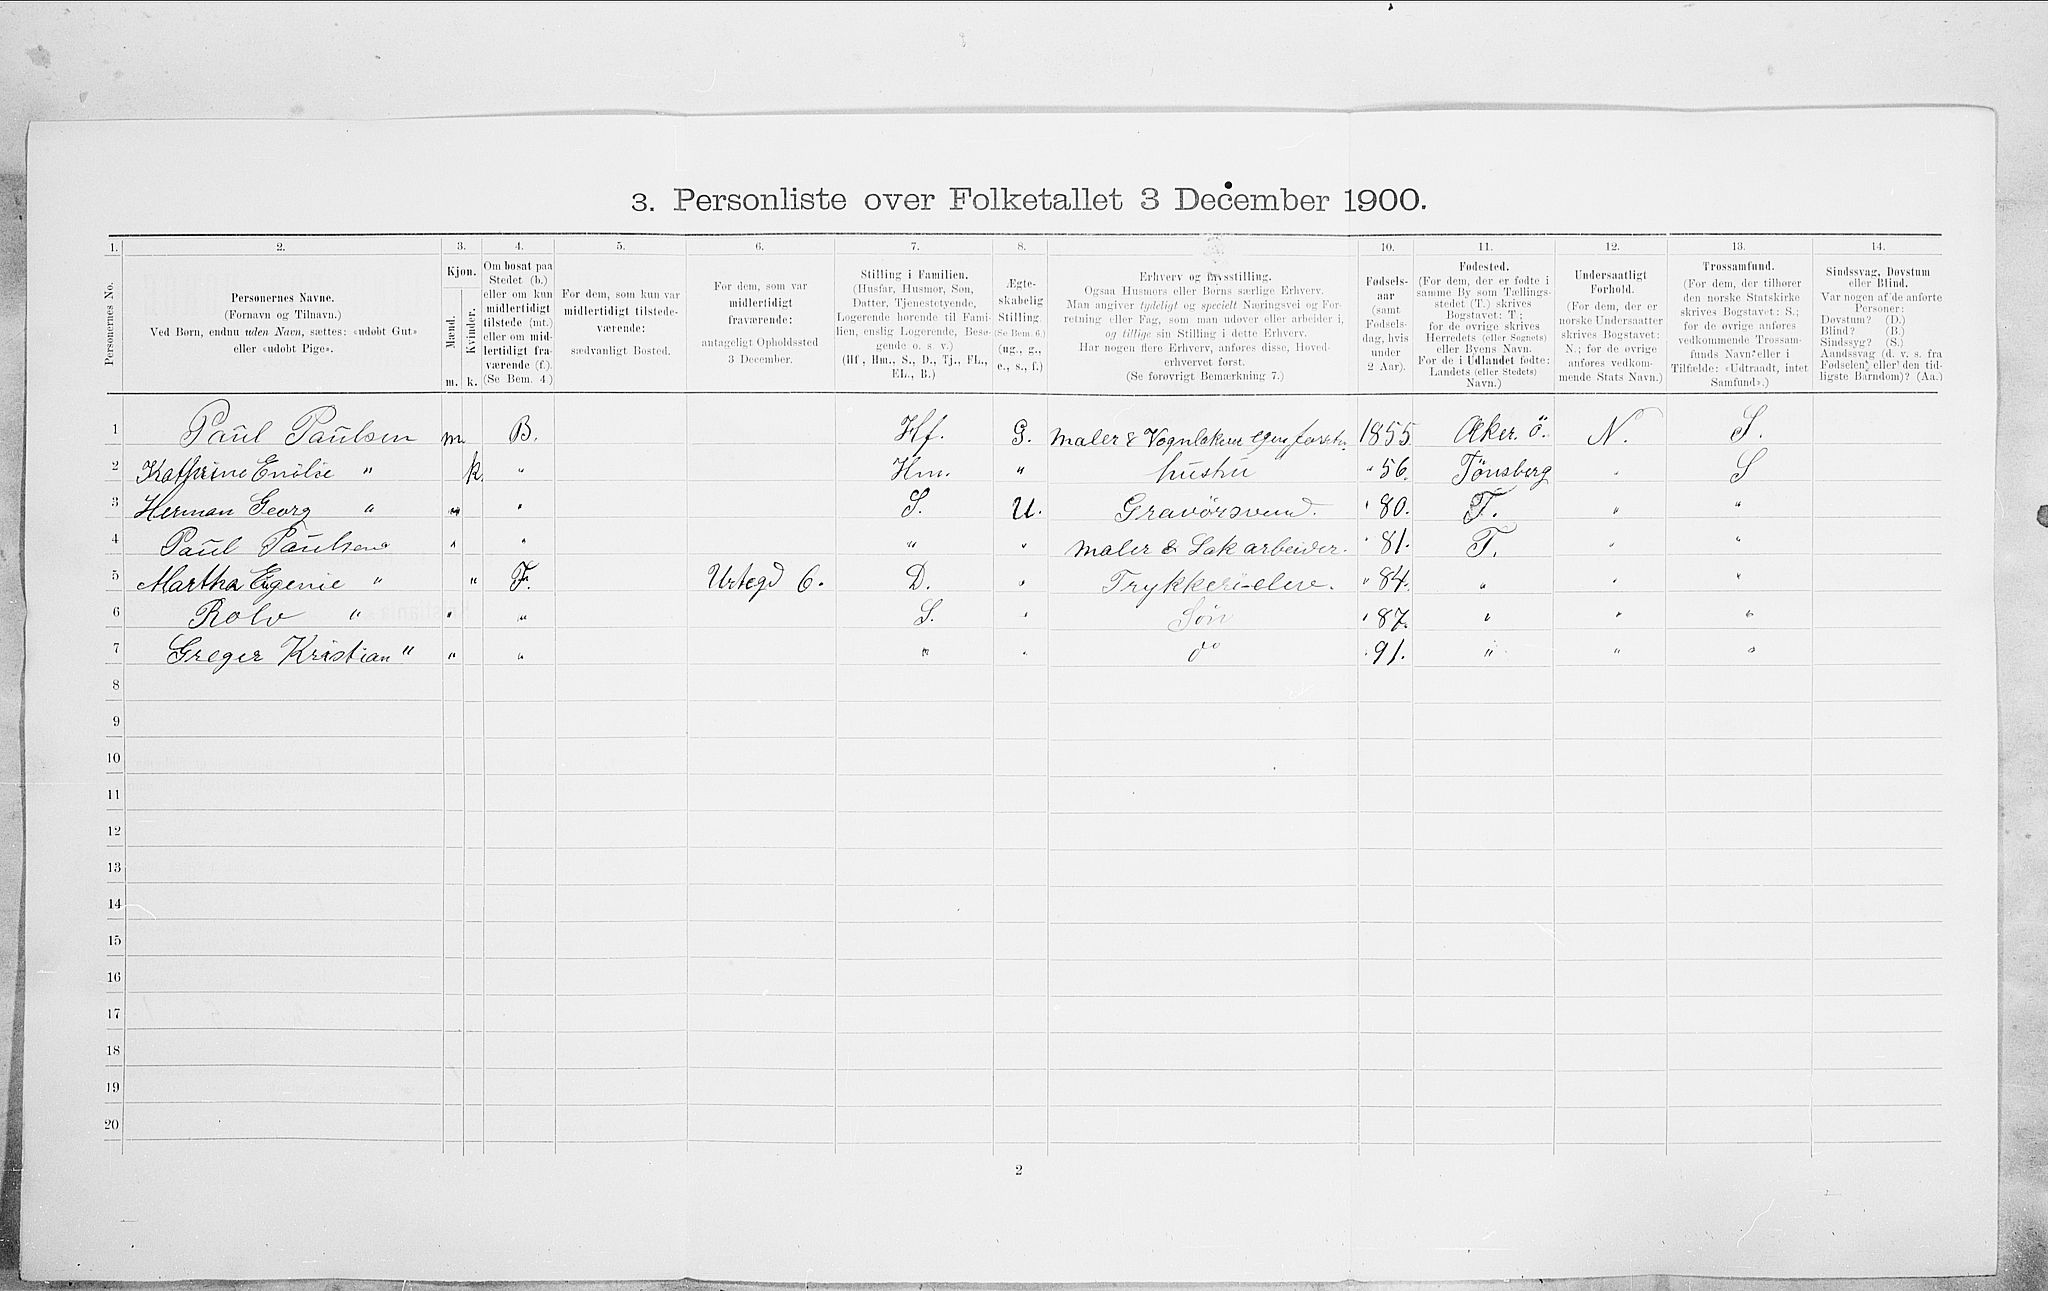 3. Personliste over Folketallet 3 December 1900.
1. 2. 3. 4. 5. 6. 7. 8. 10. 11. 12. 13. 14.
Personernes No.
Personernes Navne.
(Fornavn og Tilnavn.)
Ved Børn, endnu uden Navn, sættes: «udøbt Gut»
eller «udøbt Pige».
Kjøn.
Mænd.
Kvinder.
m. k.
Om bosat paa
Stedet (b.)
eller om kun
midlertidigt
tilstede (mt.)
eller om mid-
lertidigt fra-
værende (f.).
(Se Bem. 4)
For dem, som kun var
midlertidigt tilstede-
værende:
sædvanligt Bosted.
For dem, som var
midlertidigt
fraværende:
antageligt Opholdssted
3 December.
Stilling i Familien.
(Husfar, Husmor, Søn,
Datter, Tjenestetyende,
Logerende hørende til Fami-
lien, enslig Logerende, Besø-
gende o. s. v.)
(Hf, Hm., S., D., Tj., FL.,
EL., B.)
Ægte-
skabelig
Stilling.
(Se Bem. 6.)
(ug., g.,
e., s., f.)
Erhverv og Livsstilling.
Ogsaa Husmors eller Børns særlige Erhverv.
Man angiver tydeligt og specielt Næringsvei og For-
retning eller Fag, som man udøver eller arbeider i,
og tillige sin Stilling i dette Erhverv.
Har nogen flere Erhverv, anføres disse, Hoved-
erhvervet først.
(Se forøvrigt Bemærkning 7.)
Fødsels-
aar
(samt
Fødsels-
dag, hvis
under
2 Aar).
Fødested.
(For dem, der er fødte i
samme By som Tællings-
stedet (T.) skrives
Bogstavet: T;
for de øvrige skrives
Herredets (eller Sognets)
eller Byens Navn.
For de i Udlandet fødte:
Landets (eller Stedets)
Navn.)
Undersaatligt
Forhold.
(For dem, der er
norske Undersaatter
skrives Bogstavet:
N.; for de øvrige
anføres vedkom-
mende Stats Navn.)
Trossamfund.
(For dem, der tilhører
den norske Statskirke
skrives Bogstavet: S.;
for de øvrige anføres
vedkommende Trossam-
funds Navn eller i
Tilfælde: «Udtraadt, intet
Samfund».)
Sindssvag, Døvstum
eller Blind.
Var nogen af de anførte
Personer:
Døvstum? (D.)
Blind? (B.)
Sindssyg? (S.)
Aandssvag (d. v. s. fra
Fødselen eller den tid-
ligste Barndom)? (Aa.)
1 Paul Paulsen m. B. Hf. G. Maler & Vognlakerer 1855 Aker. ö. N. S.
2 Kathrine Emilie " k. " Hm. " hustru " 56. Tönsberg " S
3 Herman Georg " m " S. U. Gravörsvend. " 80. T. " "
4 Paul Paulsen " " " " Maler & Lakarbeider. " 81. T. " "
5 Martha Eugenie " " F. Urtegd 6. D. " Trykkeri-elev. " 84. " " "
6 Rolv " " " S. " Søn " 87. " " "
7 Greger Kristian " " " " " do " 91. " " "
8
9
10
11
12
13
14
15
16
17
18
19
20
2